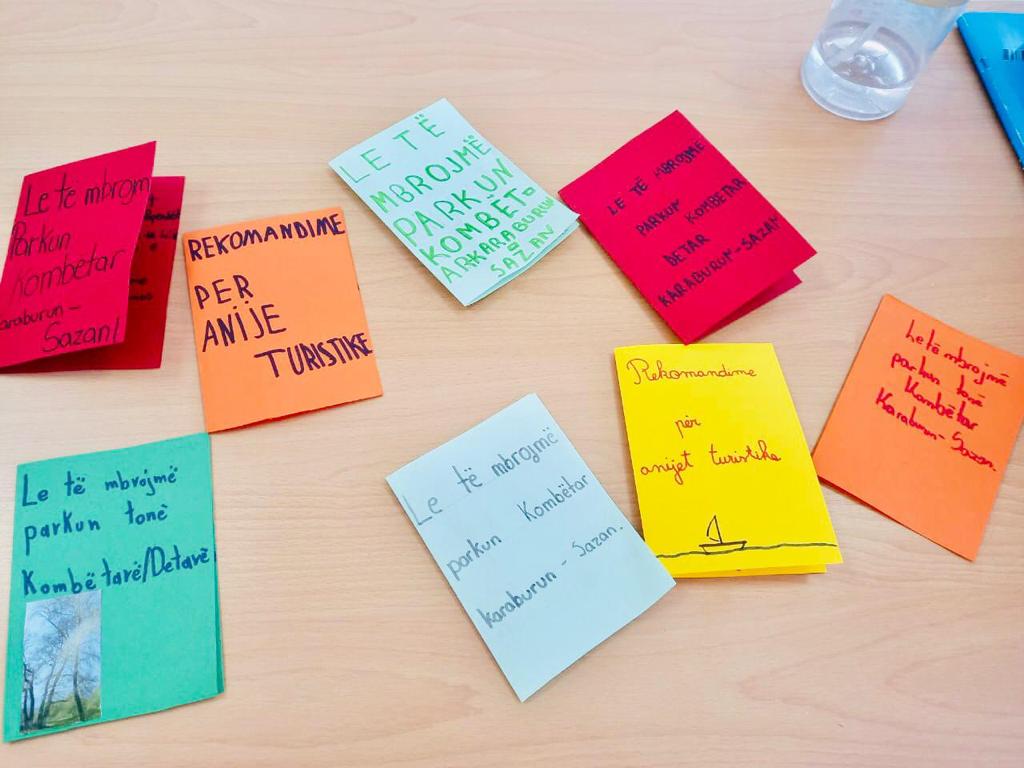 Le të mbrojm
Parkun
Kombetar
Karaburun-
Sazan!
REKOMANDIME
PER
ANIJE
TURISTIKE
LE TË
MBROJMË
PARKUN
KOMBËT-
AR KARABURUN
SAZAN
LE TË MBROJMË
PARKUN
KOMBETAR
DETAR
KARABURUN-SAZAN
Le të mbrojmë
parkun tonë
Kombëtar
Karaburun-Sazan.
Rekomandime
për
anijet turistike
Le të mbrojmë
parkun Kombëtar
Karaburun-Sazan.
Le të mbrojmë
parkun tonë
Kombëtarë/Detarë